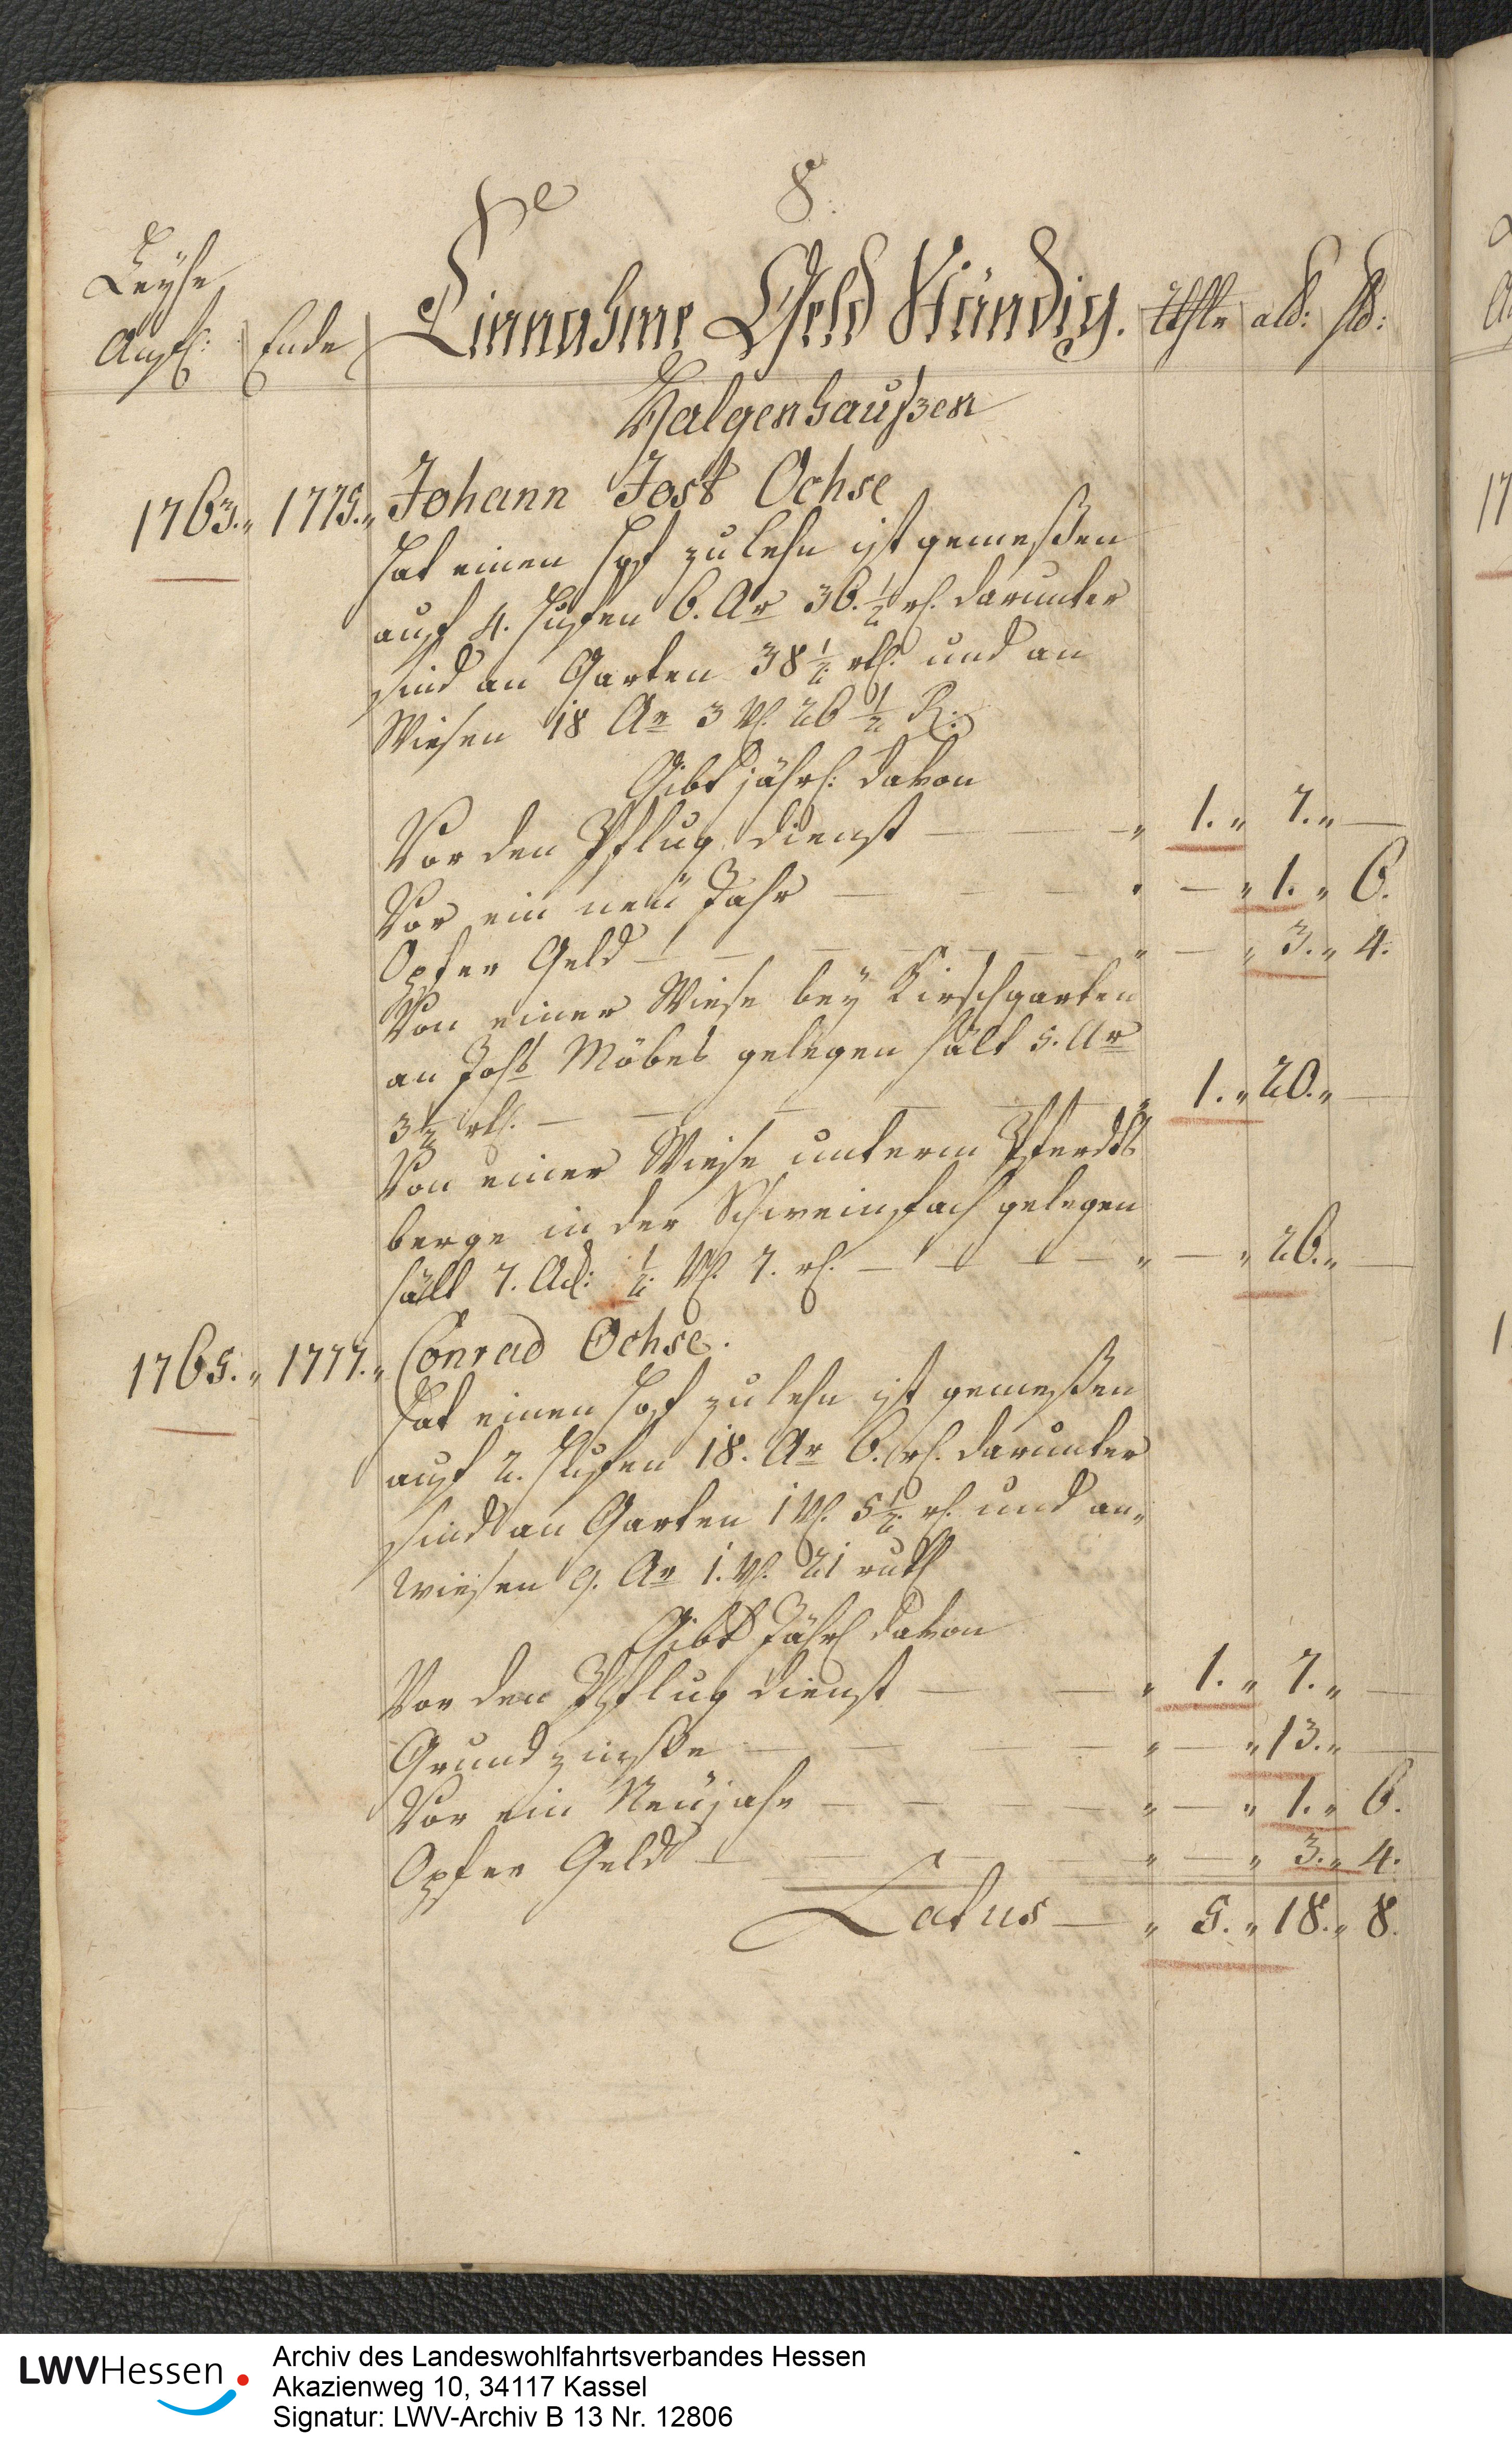 8.
Leyhe
Anf: Ende Einnahme Geld Ständig. Rthlr alb: hl:
Halgenhaußen
1763. 1775. Johann Jost Ochse
hat einen Hof zu Lehn ist gemeßen
auf 4. Hufen 6. Ar 36. ½ rt. darunter
sind an Garten 38 ½ rt. und an
Wiesen 18 Ar 3 Vl. 26 ½ R.
Gibt jährl: davon
Vor den Pflug dienst — 1. 7. —
Vor ein neü Jahr — — 1. 6.
Opfer Geld — — 3. 4.
Von einer Wiese bey Kirschgarten
an Johs Möbes gelegen hält 5. Ar
3½ rt. — 1. 20. —
Von einer Wiese unterm Pferds
berge in der Schweinsfach gelegen
hält 7. Ack: ½ Vl. 7. rt. — — 26. —
1765. 1777. Conrad Ochse.
hat einen Hof zu Lehn ist gemeßen
auf 2. Hufen 18. Ar 6. rt. darunter
sind an Garten 1 Vl. 5½ rt. und an
Wiesen 9. Ar 1. Vl. 21 ruth
Gibt Jährl davon
Vor den Pflug dienst — 1. 7. —
Grund zinße — — 13. —
Vor ein Neüjahr — — 1. 6.
Opfer Geld — — 3. 4.
Latus — 5. 18. 8.
LWVHessen
Archiv des Landeswohlfahrtsverbandes Hessen
Akazienweg 10, 34117 Kassel
Signatur: LWV-Archiv B 13 Nr. 12806